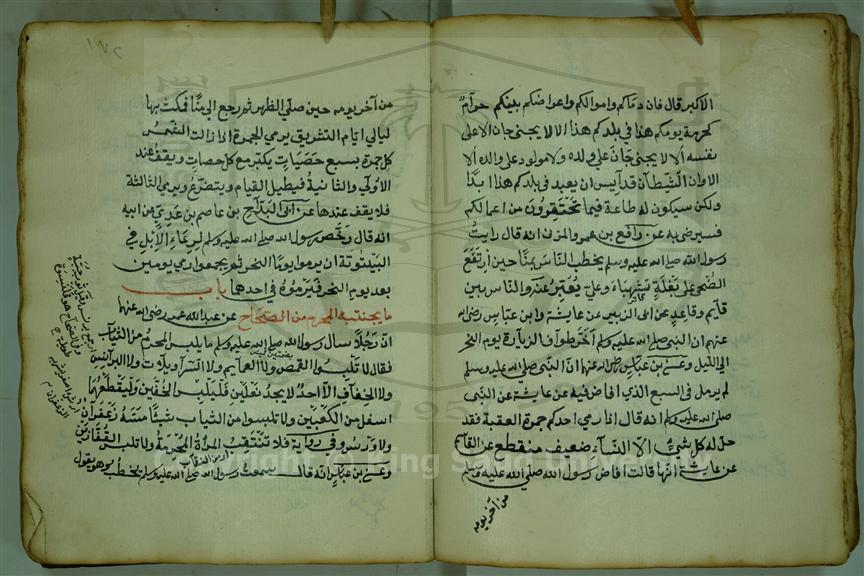 الاكبر قال فان دماكم واموالكم واعراضكم بينكم حرام
كحرمة يومكم هذا في بلدكم هذا الا لا يجنى جان الا على
نفسه الا لا يجنى جان على ولده ولا مولود على والده الا
الا وان الشيطان قد آيس ان يعبد في بلدكم هذا ابدا
ولكن سيكون له طاعة فيما تحتقرون من اعمالكم
فسيرضى به عن رافع بن عمرو المزنى انه قال رايت
رسول الله صلى الله عليه وسلم يخطب الناس بمنا حين ارتفع
الضحى على بغلة شهباء وعلي يعبر عنه والناس بين
قايم وقاعد عن ابى الزبير عن عايشة وابن عباس رضى الله
عنهم ان النبى صلى الله عليه وسلم أخر طواف الزيارة يوم النحر
الى الليل وعن بن عباس رضى الله عنهما ان النبى صلى الله عليه وسلم
لم يرمل في السبع الذي افاض فيه عن عايشة عن النبى
صلى الله عليه وسلم انه قال اذا رمى احدكم جمرة العقبة فقد
حل له كل شيئ الا النساء ضعيف منقطع عن القاسم
عن عايشة انها قالت افاض رسول الله صلى الله عليه وسلم
من آخر يومه
١٧٢
من آخر يومه حين صلى الظهر ثم رجع الى منا فمكث بها
ليالي ايام التشريق يرمي الجمرة اذا زالت الشمس
كل جمرة بسبع حصيات يكبر مع كل حصات ويقف عند
الاولى والثانية فيطيل القيام ويتضرع ويرمى الثالثة
فلا يقف عندها عن ابى البداح بن عاصم بن عدي عن ابيه
انه قال رخص رسول الله صلى الله عليه وسلم لرعاء الابل في
البيتوتة ان يرموا يوم النحر ثم يجمعوا رمي يومين
بعد يوم النحر فيرموه في احدها باب
ما يجتنبه المحرم من الصحاح عن عبد الله عمر رضى الله عنهما
ان رجلا سال رسول الله صلى الله عليه وسلم ما يلبس المحرم من الثياب
فقال لا تلبسوا القمص ولا العمايم ولا السراويلات ولا البرانس
ولا الخفاف الا احد لا يجد نعلين فليلبس الخفين وليقطعهما
اسفل من الكعبين ولا تلبسوا من الثياب شيئا مسه زعفران
ولا ورس وفي رواية فلا تنتقب المراة المحرمة ولا تلبس القفازين
وعن بن عباس انه قال سمعت رسول الله صلى الله عليه وسلم يخطب وهو يقول